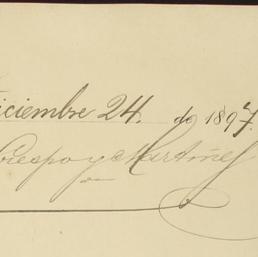 iciembre 24. de 1897.
Crespo y Martinez